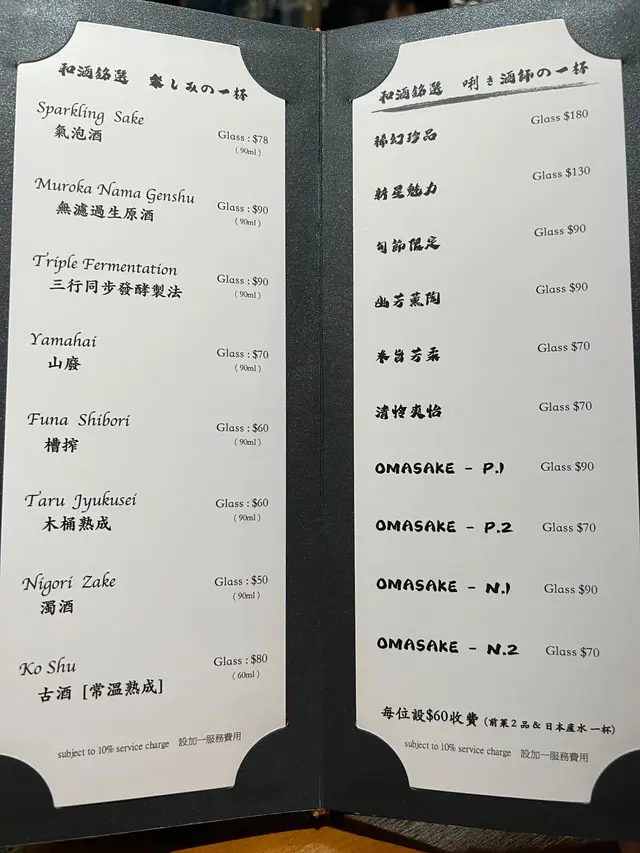 和酒銘選 楽しみの一杯
Sparkling Sake
氣泡酒
Glass : $78
(90ml)
Muroka Nama Genshu
無濾過生原酒
Glass : $90
(90ml)
Triple Fermentation
三行同步發酵製法
Glass : $90
(90ml)
Yamahai
山廢
Glass : $70
(90ml)
Funa Shibori
槽搾
Glass : $60
(90ml)
Taru Jyukusei
木桶熟成
Glass : $60
(90ml)
Nigori Zake
濁酒
Glass : $50
(90ml)
Ko Shu
古酒 [常溫熟成]
Glass : $80
(60ml)
subject to 10% service charge 設加一服務費用
和酒銘選 唎き酒師の一杯
稀幻珍品 Glass $180
新星魅力 Glass $130
旬節限定 Glass $90
幽芳薫陶 Glass $90
米旨芳柔 Glass $70
清怜爽怡 Glass $70
OMASAKE - P.1 Glass $90
OMASAKE - P.2 Glass $70
OMASAKE - N.1 Glass $90
OMASAKE - N.2 Glass $70
每位設$60收費 (前菜2品&日本産水一杯)
subject to 10% service charge 設加一服務費用